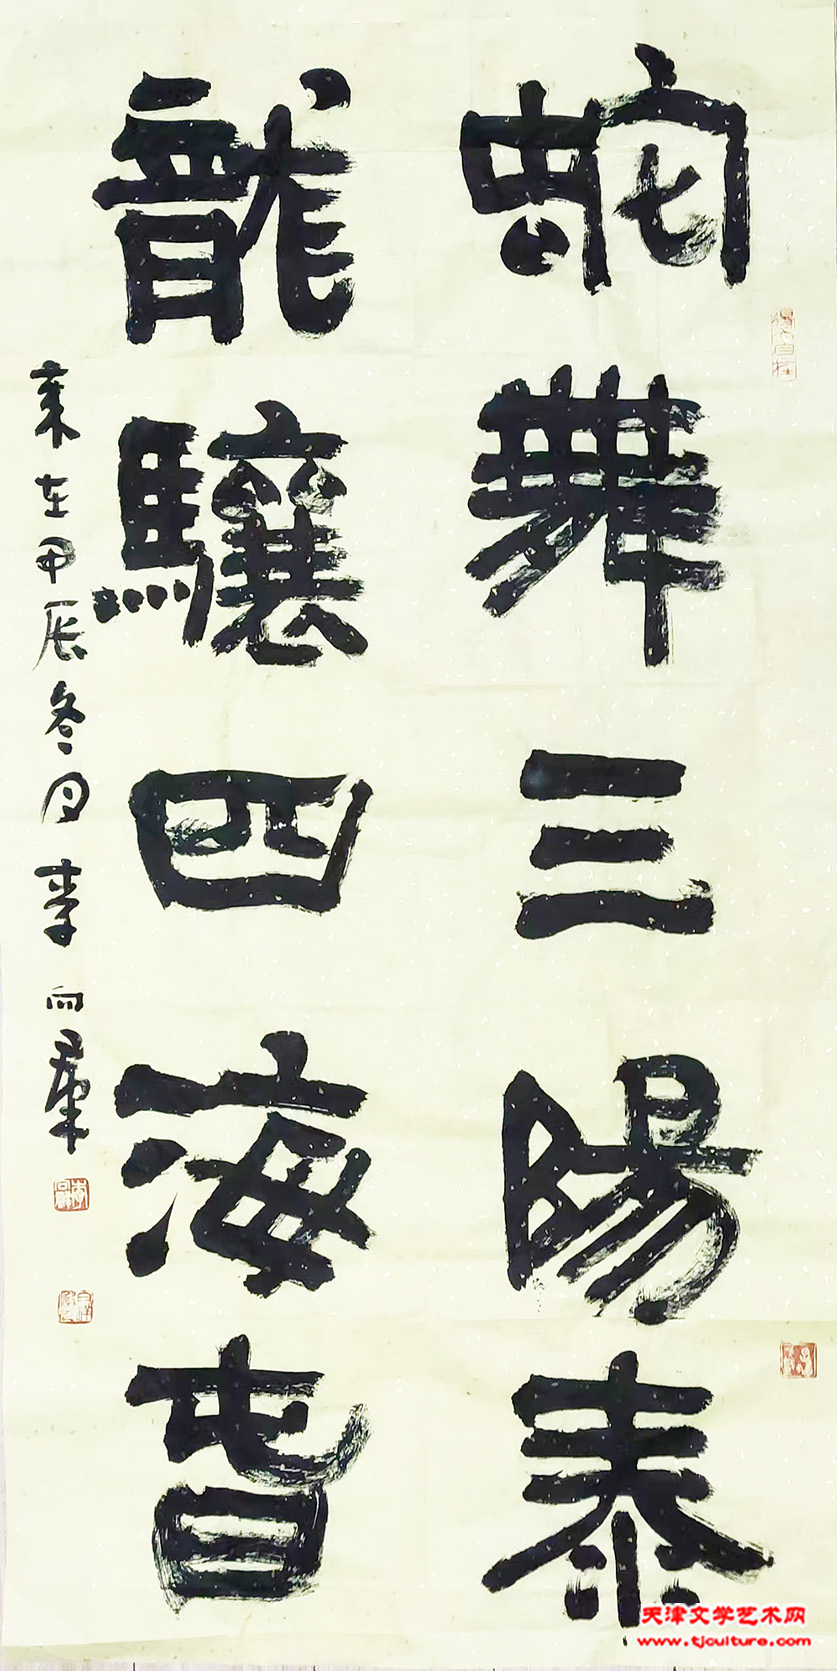 蛇舞三陽泰
龍驤四海春
歲在甲辰冬月李向群
天津文学艺术网
www.tjculture.com